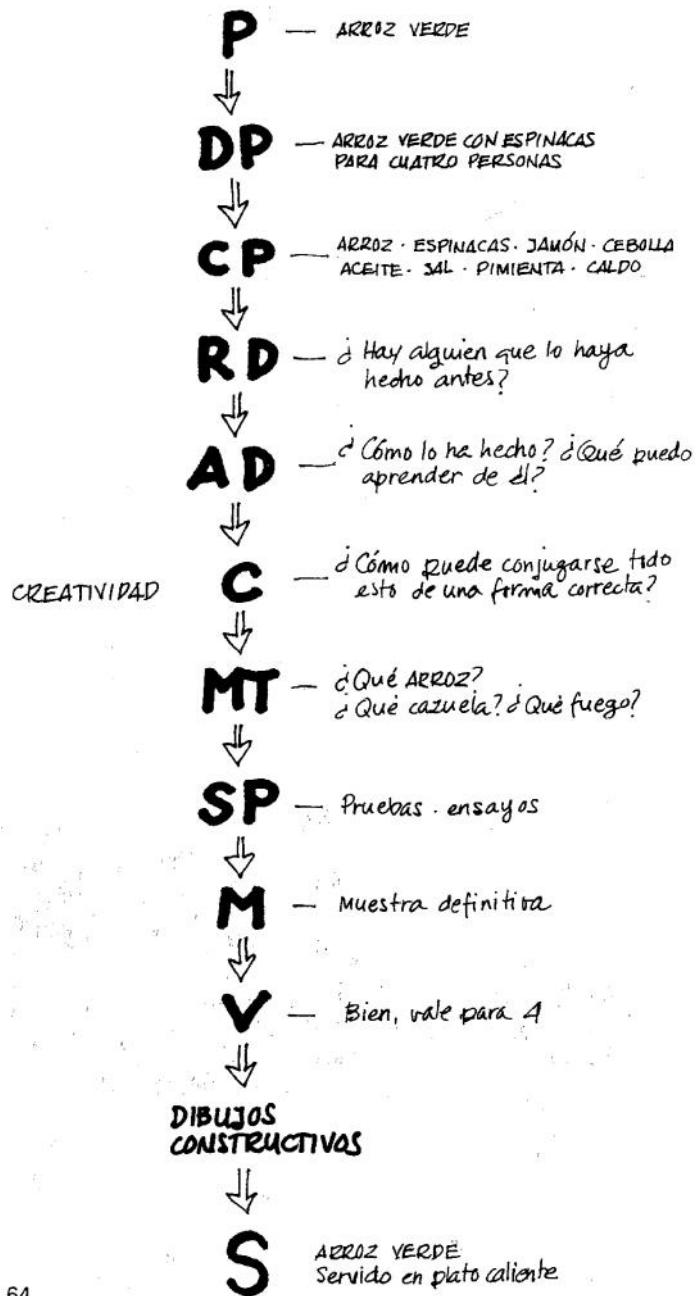 P — ARROZ VERDE
DP — ARROZ VERDE CON ESPINACAS
PARA CUATRO PERSONAS
CP — ARROZ · ESPINACAS · JAMÓN · CEBOLLA
ACEITE · SAL · PIMIENTA · CALDO
RD — ¿Hay alguien que lo haya
hecho antes?
AD — ¿Cómo lo ha hecho? ¿Qué puedo
aprender de él?
CREATIVIDAD C — ¿Cómo puede conjugarse todo
esto de una forma correcta?
MT — ¿Qué ARROZ?
¿Qué cazuela? ¿Qué fuego?
SP — Pruebas · ensayos
M — Muestra definitiva
V — Bien, vale para 4
DIBUJOS
CONSTRUCTIVOS
S ARROZ VERDE
Servido en plato caliente
64